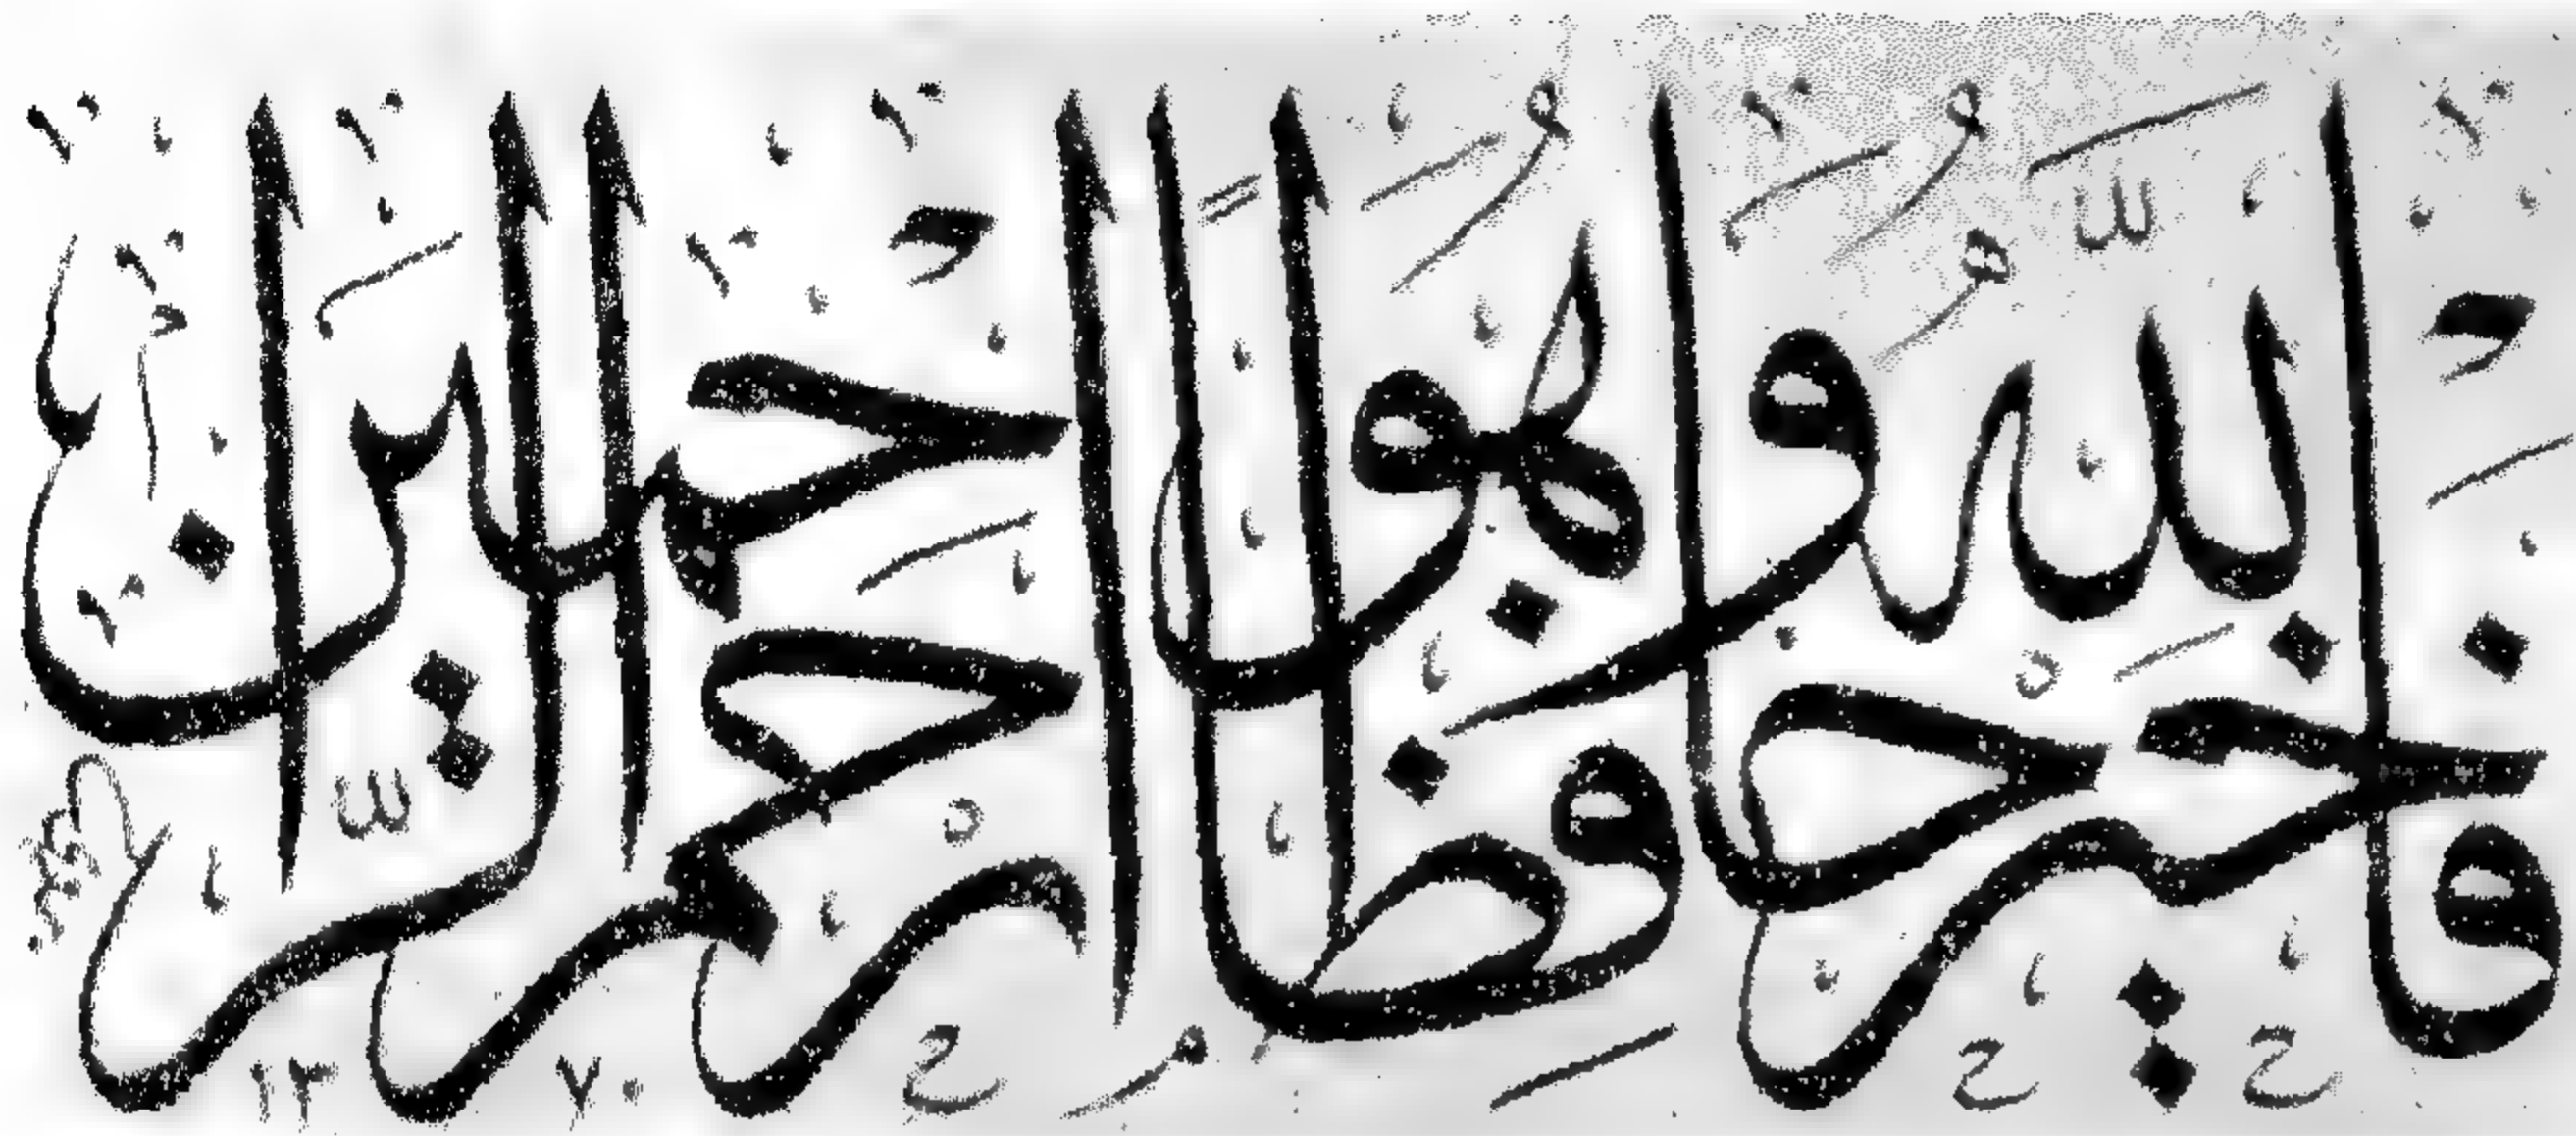 فالله خير حافظا وهو ارحم الراحمين
١٢٧٠